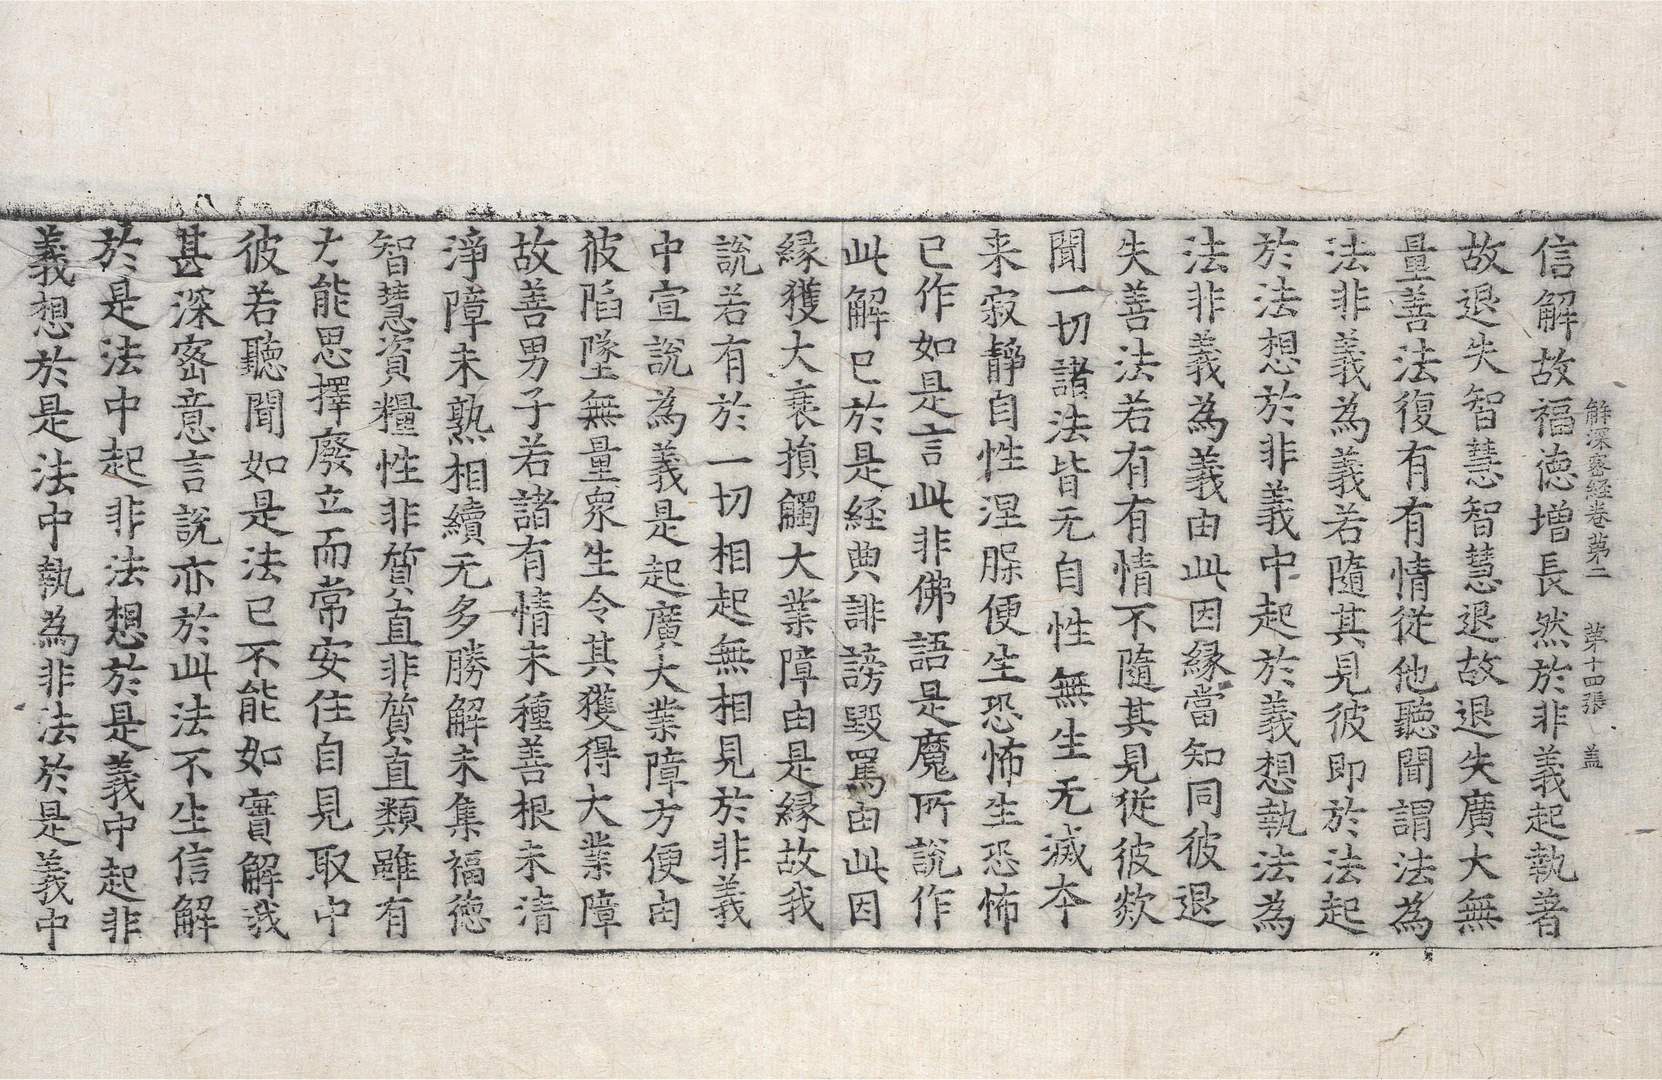 解深密経巻第二　第十四張　蓋
信解故福徳増長然於非義起執著
故退失智慧智慧退故退失廣大無
量善法復有有情従他聽聞謂法為
法非義為義若隨其見彼即於法起
於法想於非義中起於義想執法為
法非義為義由此因縁當知同彼退
失善法若有有情不隨其見従彼欻
聞一切諸法皆无自性無生无滅夲
来寂静自性涅槃便生恐怖生恐怖
已作如是言此非佛語是魔所說作
此解已於是経典誹謗毀罵由此因
縁獲大衰損觸大業障由是縁故我
說若有於一切相起無相見於非義
中宣說為義是起廣大業障方便由
彼陷墜無量衆生令其獲得大業障
故善男子若諸有情未種善根未清
淨障未熟相續无多勝解未集福徳
智慧資糧性非質直非質直類雖有
力能思擇廢立而常安住自見取中
彼若聽聞如是法已不能如實解我
甚深密意言說亦於此法不生信解
於是法中起非法想於是義中起非
義想於是法中執為非法於是義中